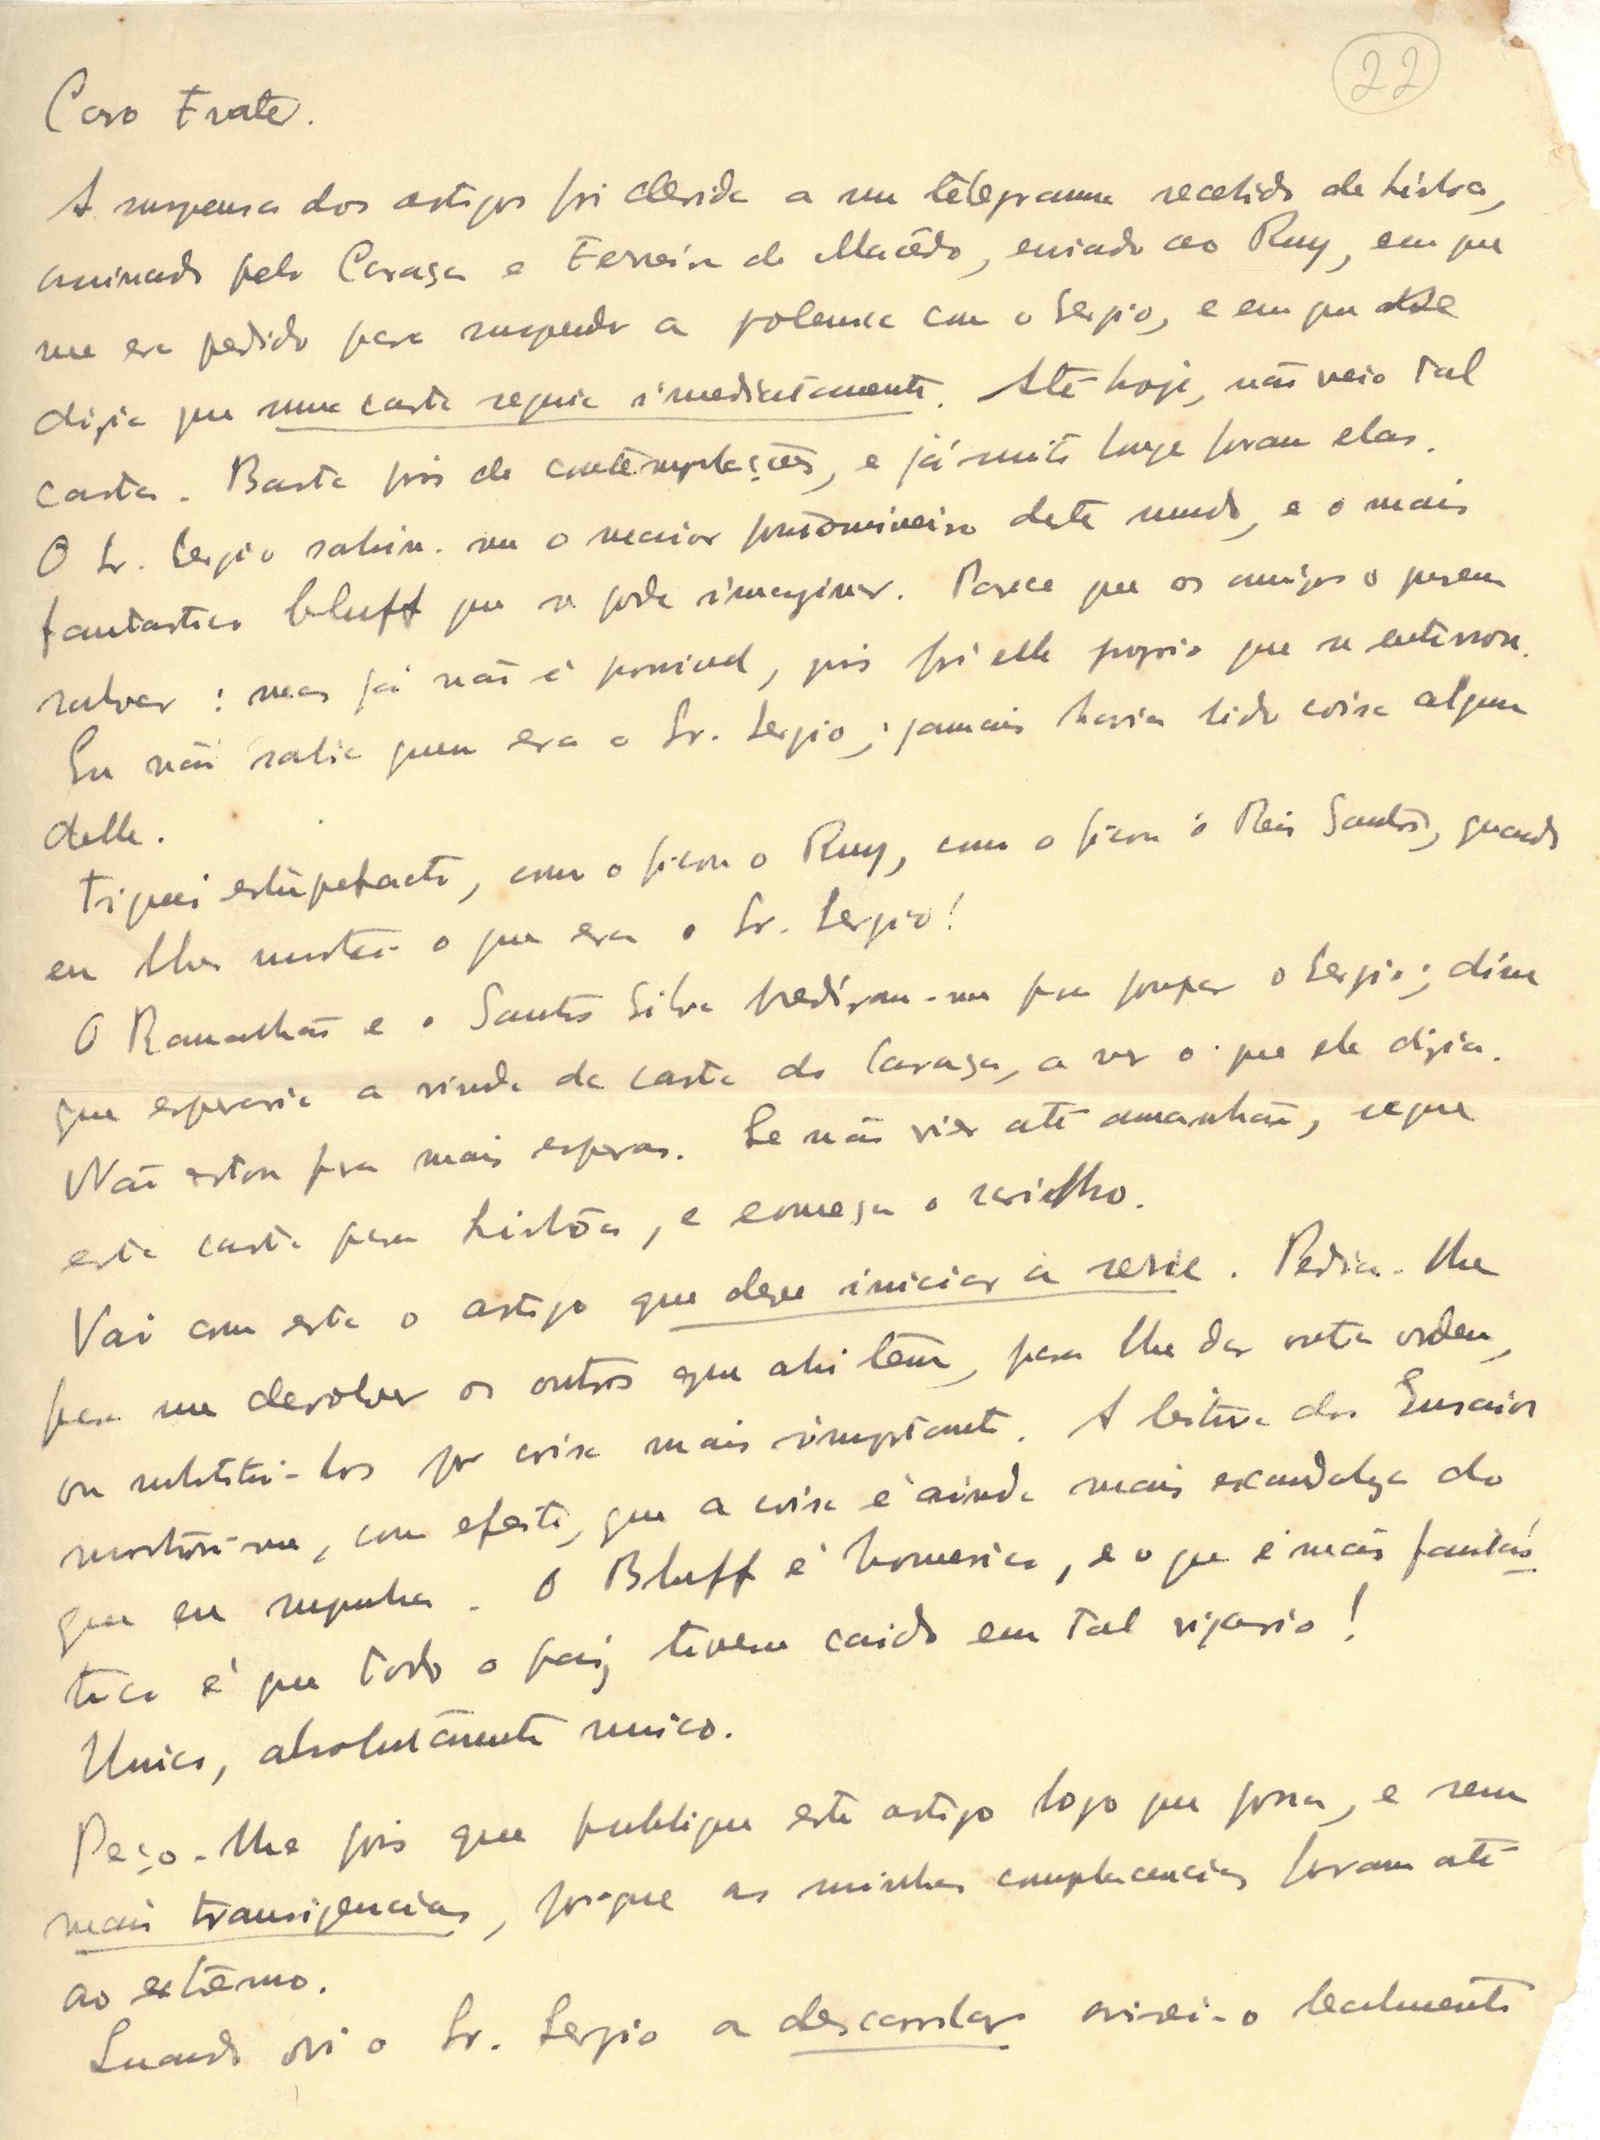 22
Caro Frate.
A suspensa dos artigos foi devida a um telegrama recebido de Lisboa,
assinado pelo Caraça e Ferreira de Macêdo, enviado ao Ruy, em que
me era pedido para suspender a polemica com o Sergio, e em que
dizia que uma carta seguia imediatamente. Até hoje, não veio tal
carta. Basta pois de contemplações, e já muito longe foram elas.
O Sr. Sergio sahiu-me o maior pantomineiro deste mundo, e o mais
fantastico bluff que se pode imaginar. Parece que os amigos o querem
salvar: mas já não é possivel, pois foi elle proprio que se enterrou.
Eu não sabia quem era o Sr. Sergio; jamais havia lido coisa alguma
delle.
Fiquei estupefacto, como o ficou o Ruy, como o ficou o Reis Santos, quando
eu lhes mostrei o que era o Sr. Sergio!
O Ramalhão e o Santos Silva pediram-me para poupar o Sergio; disse
que esperaria a vinda da carta do Caraça, a ver o que ele dizia.
Não estou para mais esperas. Se não vier até amanhã, segue
esta carta para Lisbôa, e começa o sarilho.
Vai com esta o artigo que deve iniciar a serie. Pedia-lhe
para me devolver os outros que ahi têm, para lhe dar outra ordem,
ou substitui-los por coisa mais importante. A leitura dos Ensaios
mostrou-me, com efeito, que a coisa é ainda mais escandalosa do
que eu supunha. O Bluff é homerico, e o que é mais fantás
tico é que todo o paiz tivesse caido em tal vigario!
Unico, absolutamente unico.
Peço-lhe pois que publique este artigo logo que possa, e sem
mais transigencias, porque as minhas complacencias foram até
ao extremo.
Quando vi o Sr. Sergio a descarrilar avisei-o lealmente